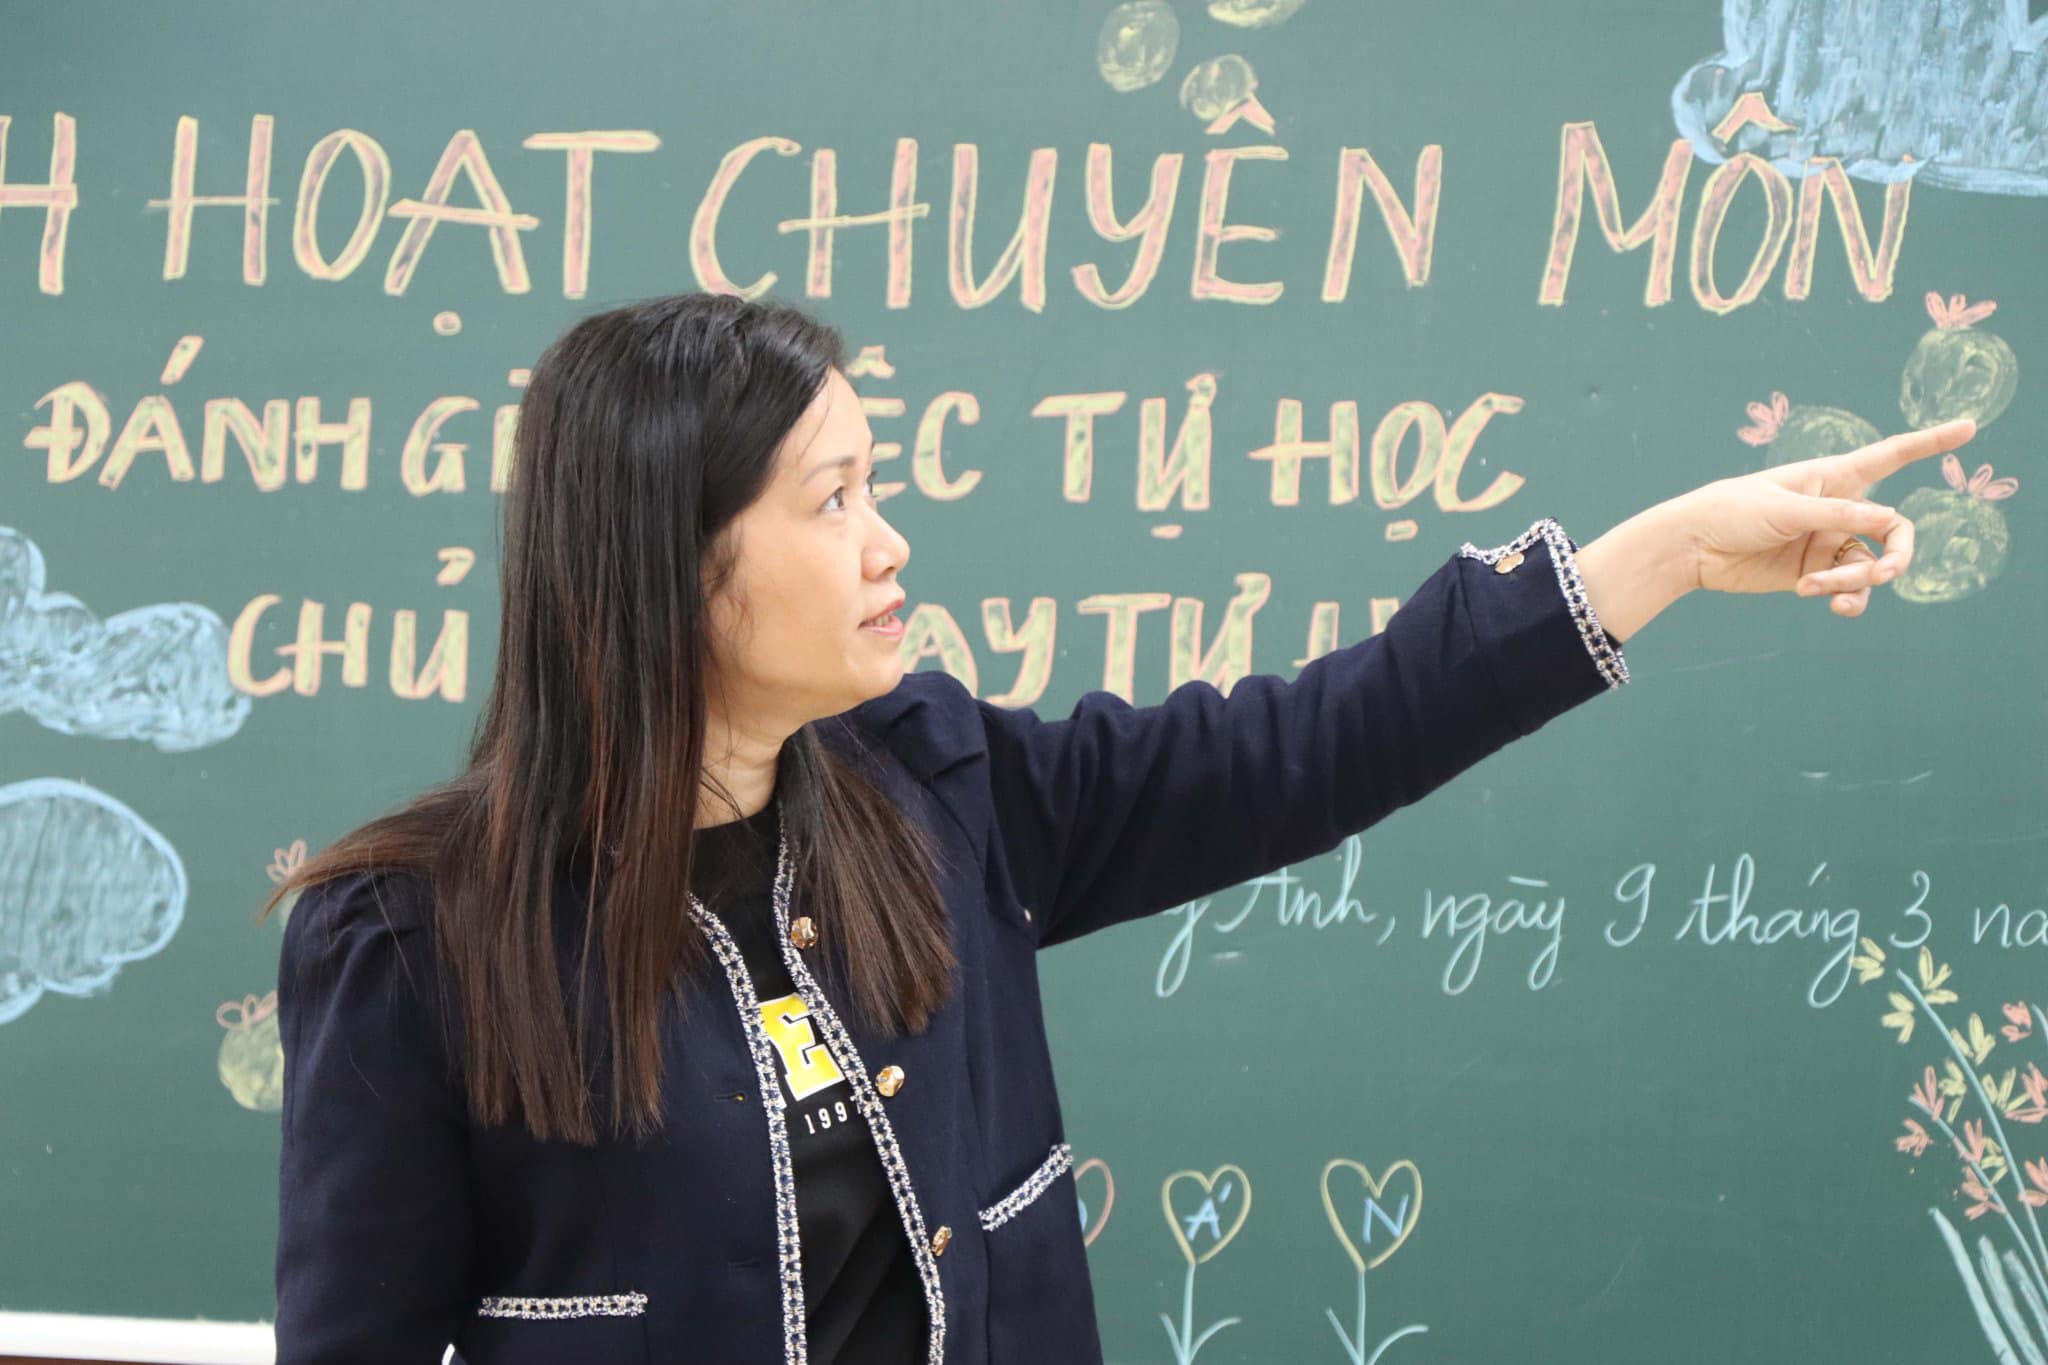 H HOẠT CHUYÊN MÔN
ĐÁNH ỆC TỰ HỌC
CHỦ AY TỰ H
g Anh, ngày 9 tháng 3 na
E
199
Á N